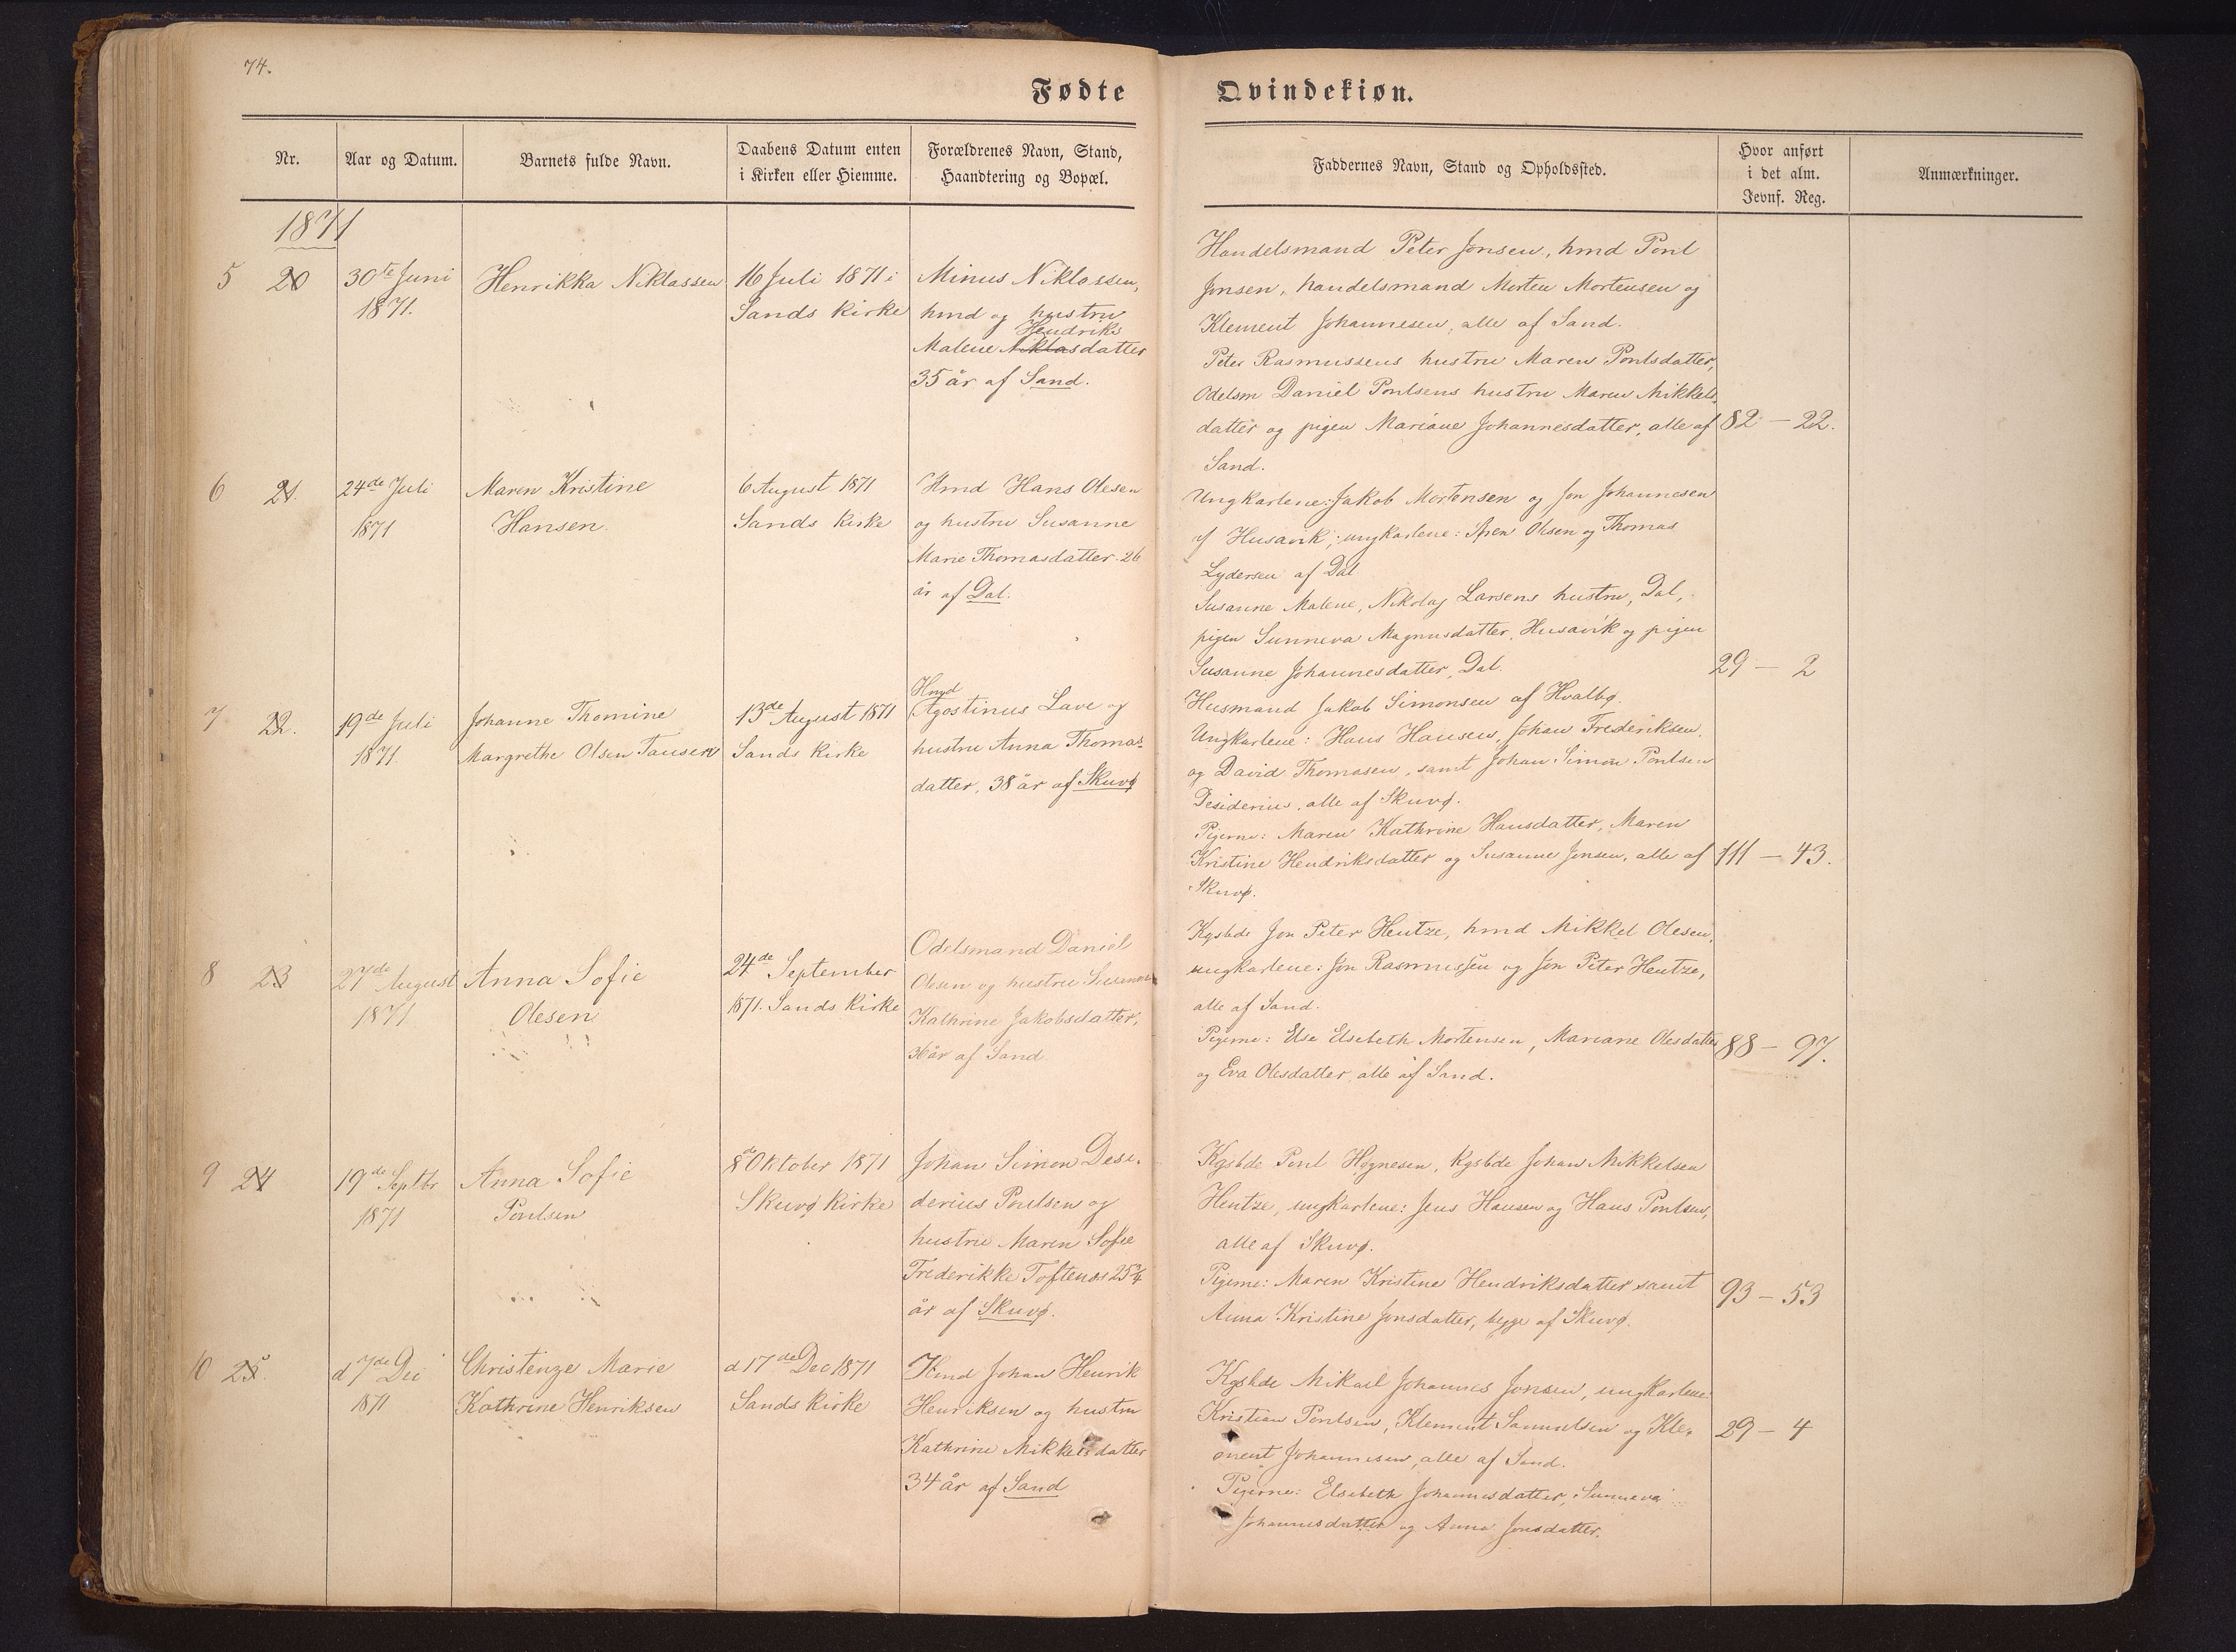 74.
Fødte
Qvindekiøn.
Nr.
Aar og Datum.
Barnets fulde Navn.
Daabens Datum enten
i Kirken eller Hiemme.
Forældrenes Navn, Stand,
Haandtering og Bopæl.
Faddernes Navn, Stand og Opholdssted.
Hvor anført
i det alm.
Jevnf. Reg.
Anmærkninger.
1871
5 20
30te Juni
1871.
Henrikka Niklassen
16 Juli 1871 i
Sands Kirke
Minus Niklassen,
hmd og hustru
Hendriks
Malene Niklasdatter
35 år af Sand.
Handelsmand Peter Jonsen, hmd Poul
Jonsen, handelsmand Morten Mortensen og
Klement Johannesen, alle af Sand.
Peter Rasmussens hustru Maren Poulsdatter,
Odelsm Daniel Poulsens hustru Maren Mikkels-
datter og pigen Mariane Johannesdatter, alle af
Sand.
82 — 22.
6 21.
24de Juli
1871
Maren Kristine
Hansen.
6 August 1871
Sands Kirke
Hmd Hans Olesen
og hustru Susanne
Marie Thomasdatter 26
år af Dal.
Ungkarlene: Jakob Mortensen og Jon Johannesen
af Husavik; ungkarlene: Olesen og Thomas
Lydersen af Dal
Susanne Malene, Nikolaj Larsens hustru, Dal,
pigen Sunneva Magnusdatter, Husavik og pigen
Susanne Johannesdatter, Dal.
29 — 2
7 22.
19de Juli
1871.
Johanne Thomine
Margrethe Olsen Tausen
13de August 1871
Sands Kirke
Hmd
Agostinus Lave og
hustru Anna Thomas-
datter, 38 år af Skuvø
Husmand Jakob Simonsen af Hvalbø.
Ungkarlene: Hans Hansen, Johan Frederiksen
og David Thomasen, samt Johan Simon Poulsen
Desiderius, alle af Skuvø.
Pigerne: Maren Kathrine Hansdatter, Maren
Kristine Hendriksdatter og Susanne Jensen, alle af
Skuvø.
111 — 43.
8 23
27de August
1871
Anna Sofie
Olesen
24de September
1871. Sands Kirke
Odelsmand Daniel
Olesen og hustru Susanne
Kathrine Jakobsdatter,
36 år af Sand.
Kgsbde Jon Peter Hentze, hmd Mikkel Olesen,
ungkarlene: Jon Rasmussen og Jon Peter Hentze,
alle af Sand.
Pigerne: Else Elsebeth Mortensen, Mariane Olesdatter
og Eva Olesdatter, alle af Sand.
88 — 97.
9 24
19de Septbr
1871
Anna Sofie
Poulsen
8de Oktober 1871
Skuvø Kirke
Johan Simon Desi-
derius Poulsen og
hustru Maren Sofie
Frederikke Toftenæs 25¾
år af Skuvø.
Kgsbde Poul Høgnesen, Kgsbde Johan Mikkelsen
Hentze, ungkarlene: Jens Hansen og Hans Poulsen,
alle af Skuvø.
Pigerne: Maren Kristine Hendriksdatter samt
Anna Kristine Jonsdatter, begge af Skuvø.
93 — 53
10 25.
d 7de Dec
1871
Christenze Marie
Kathrine Henriksen
d 17de Dec 1871
Sands Kirke
Hmd Johan Henrik
Henriksen og hustru
Kathrine Mikkelsdatter
34 år af Sand
Kgsbde Mikael Johannes Jonsen, ungkarlene:
Kristian Poulsen, Klement Samuelsen og Kle-
ment Johannesen, alle af Sand.
Pigerne: Elsebeth Johannesdatter, Sunneva
Johannesdatter og Anna Jonsdatter.
29 — 4